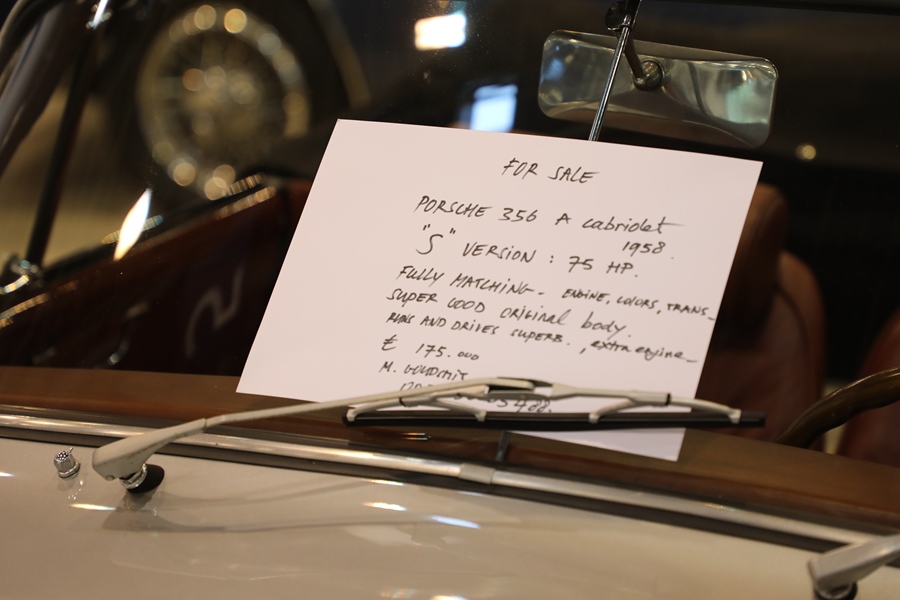 FOR SALE
PORSCHE 356 A cabriolet
1958.
"S" VERSION : 75 HP.
FULLY MATCHING - ENGINE, COLORS, TRANS_
SUPER GOOD ORIGINAL body.
RUNS AND DRIVES SUPERB. , extra engine_
£ 175.000
M. GOUDSMIT